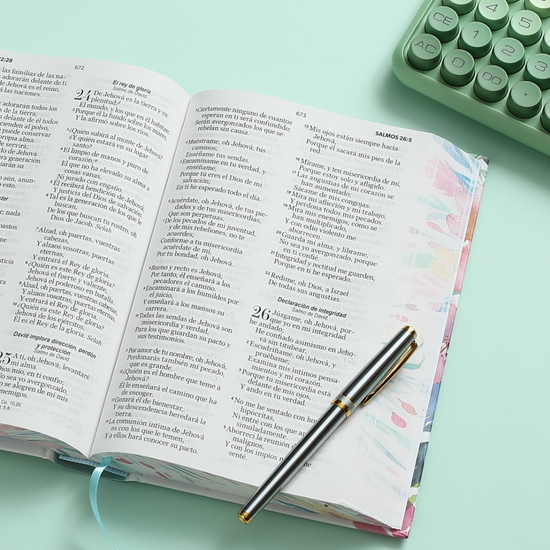 22:28
672
as las familias de las na-
adorarán delante de ti.
de Jehová es el reino,
las naciones.
adorarán todos los
de la tierra;
delante de él todos
cienden al polvo,
puede conservar
propia alma.
servirá;
rá de Jehová
era generación.
rán su
El rey de gloria
Salmo de David
24 De Jehová es la tierra y su
plenitud;
El mundo, y los que en él habitan.
Porque él la fundó sobre los mares,
Y la afirmó sobre los ríos.
¿Quién subirá al monte de Jehová?
¿Y quién estará en su lugar
santo?
El limpio de manos y puro de
corazón;
El que no ha elevado su alma a
cosas vanas,
Ni jurado con engaño.
El recibirá bendición de Jehová,
Y justicia del Dios de salvación.
Tal es la generación de los que le
buscan,
De los que buscan tu rostro, oh
Dios de Jacob. Selah
Alzad, oh puertas, vuestras
cabezas,
Y alzaos vosotras, puertas
eternas,
Y entrará el Rey de gloria.
¿Quién es este Rey de gloria?
Jehová el fuerte y valiente,
Jehová el poderoso en batalla.
Alzad, oh puertas, vuestras cabezas,
Y alzaos vosotras, puertas eternas,
Y entrará el Rey de gloria.
¿Quién es este Rey de gloria?
Jehová de los ejércitos,
Él es el Rey de la gloria. Selah
David implora dirección, perdón
y protección
Salmo de David
25 A ti, oh Jehová, levantaré
mi alma.
Dios mío, en ti confío;
No sea yo avergonzado,
No se alegren de mí mis
enemigos.
673
SALMOS 26:5
Ciertamente ninguno de cuantos
esperan en ti será confundido;
Serán avergonzados los que se
rebelan sin causa.
Muéstrame, oh Jehová, tus
caminos;
Enséñame tus sendas.
Encamíname en tu verdad, y
enséñame,
Porque tú eres el Dios de mi
salvación;
En ti he esperado todo el día.
Acuérdate, oh Jehová, de tus pie-
dades y de tus misericordias,
Que son perpetuas.
De los pecados de mi juventud,
y de mis rebeliones, no te
acuerdes;
Conforme a tu misericordia
acuérdate de mí,
Por tu bondad, oh Jehová.
Bueno y recto es Jehová;
Por tanto, él enseñará a los
pecadores el camino.
Encaminará a los humildes por
el juicio,
Y enseñará a los mansos su
carrera.
Todas las sendas de Jehová son
misericordia y verdad,
Para los que guardan su pacto y
sus testimonios.
Por amor de tu nombre, oh Jehová,
Perdonarás también mi pecado,
que es grande.
¿Quién es el hombre que teme a
Jehová?
Él le enseñará el camino que ha
de escoger.
Gozará él de bienestar,
Y su descendencia heredará la
tierra.
La comunión íntima de Jehová
es con los que le temen,
Y a ellos hará conocer su pacto.
15 Mis ojos están siempre hacia
Jehová,
Porque él sacará mis pies de la
red.
16 Mírame, y ten misericordia de mí,
Porque estoy solo y afligido.
17 Las angustias de mi corazón se
han aumentado;
Sácame de mis congojas.
18 Mira mi aflicción y mi trabajo,
Y perdona todos mis pecados.
19 Mira mis enemigos, cómo se
han multiplicado,
Y con odio violento me
aborrecen.
20 Guarda mi alma, y líbrame;
No sea yo avergonzado, porque
en ti confié.
21 Integridad y rectitud me guarden,
Porque en ti he esperado.
22 Redime, oh Dios, a Israel
De todas sus angustias.
Declaración de integridad
Salmo de David
26 Júzgame, oh Jehová, por-
que yo en mi integridad
he andado;
He confiado asimismo en Jeho-
vá sin titubear.
Escudríñame, oh Jehová, y
pruébame;
Examina mis íntimos pensa-
mientos y mi corazón.
Porque tu misericordia está
delante de mis ojos,
Y ando en tu verdad.
No me he sentado con hom
hipócritas,
Ni entré con los que an
simuladamente.
Aborrecí la reunión
malignos,
Y con los impíos
senté.
CE
4
5
AC
1
2
0
00